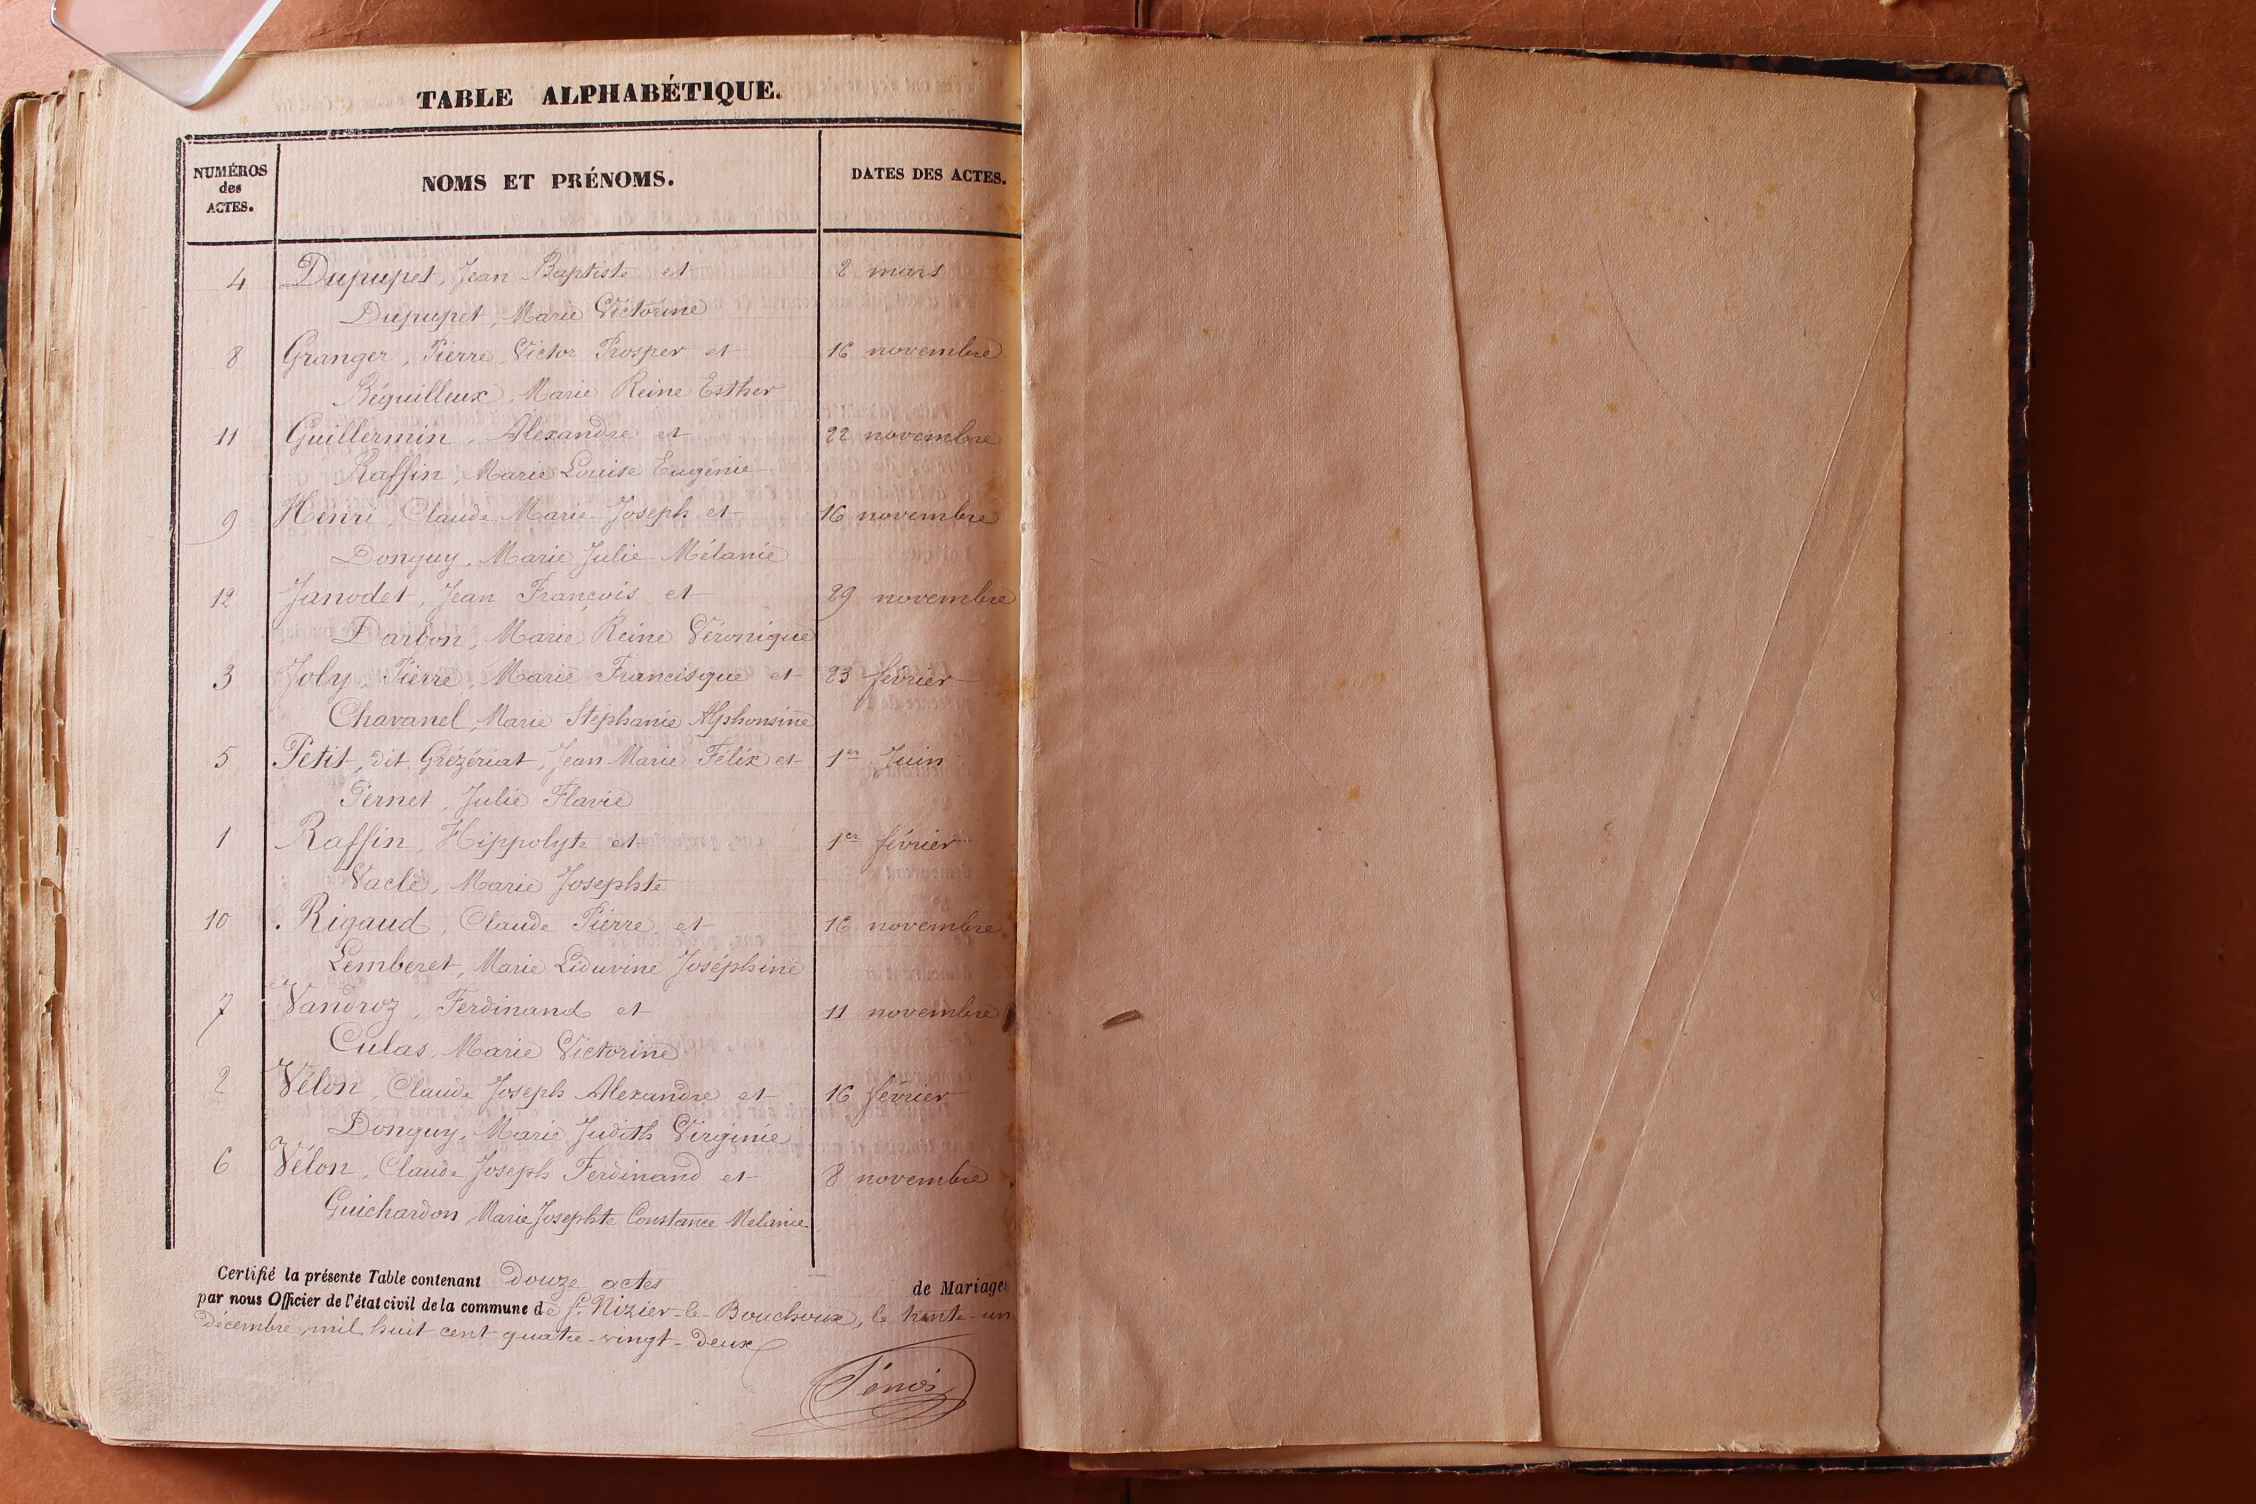 TABLE ALPHABÉTIQUE.
NUMÉROS des ACTES. NOMS ET PRÉNOMS. DATES DES ACTES.
4 Dupupet, Jean Baptiste et 2 mars
Dupupet, Marie Victorine
8 Granger, Pierre Victor Prosper et 16 novembre
Béguilleux, Marie Reine Esther
11 Guillermin, Alexandre et 22 novembre
Raffin, Marie Louise Eugénie
9 Henri, Claude Marie Joseph et 16 novembre
Donguy, Marie Julie Mélanie
12 Janodet, Jean François et 29 novembre
Darbon, Marie Reine Véronique
3 Joly, Pierre, Marie Francisque et 23 février
Chavanel, Marie Stéphanie Alphonsine
5 Petit, dit Grézériat, Jean Marie Félix et 1er Juin
Pernet, Julie Flavie
1 Raffin, Hippolyte et 1er février
Vacle, Marie Josephte
10 Rigaud, Claude Pierre et 16 novembre
Lemberet, Marie Liduvine Joséphine
7 Vandroz, Ferdinand et 11 novembre
Culas, Marie Victorine
2 Vélon, Claude Joseph Alexandre et 16 février
Donguy, Marie Judith Virginie
6 Vélon, Claude Joseph Ferdinand et 8 novembre
Guichardon, Marie Josephte Constance Mélanie
Certifié la présente Table contenant Douze actes de Mariage
par nous Officier de l'état civil de la commune de St Nizier-le-Bouchoux, le trente-un
décembre, mil huit cent quatre-vingt-deux